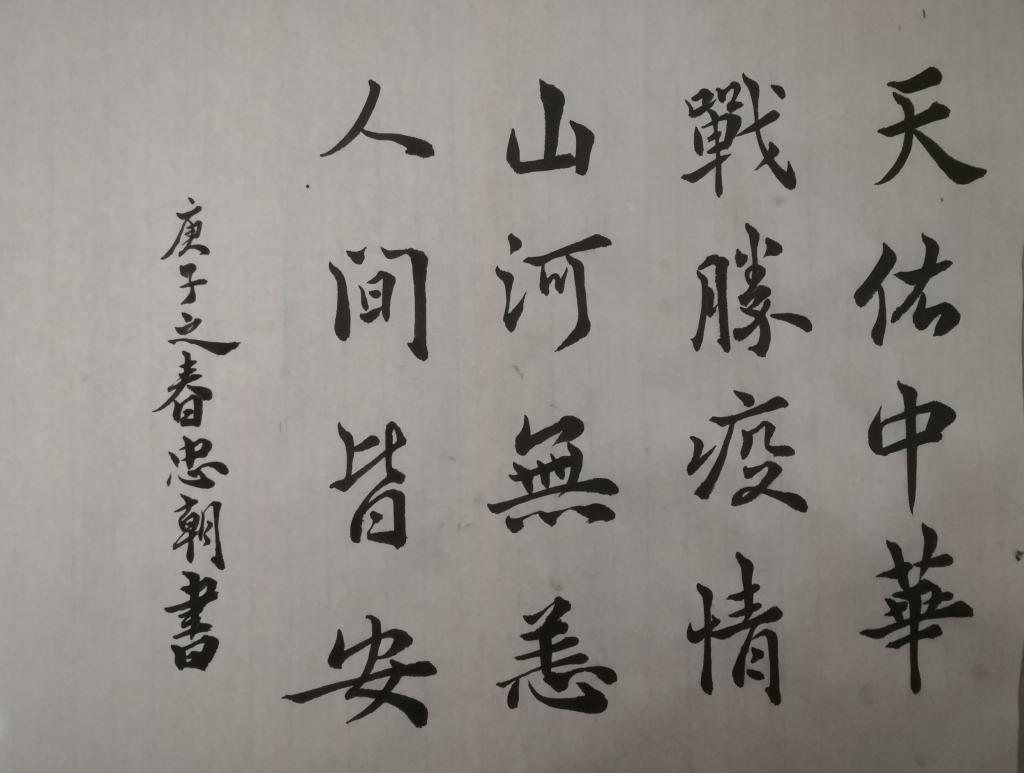 天佑中華
戰勝疫情
山河無恙
人間皆安
庚子之春忠朝書